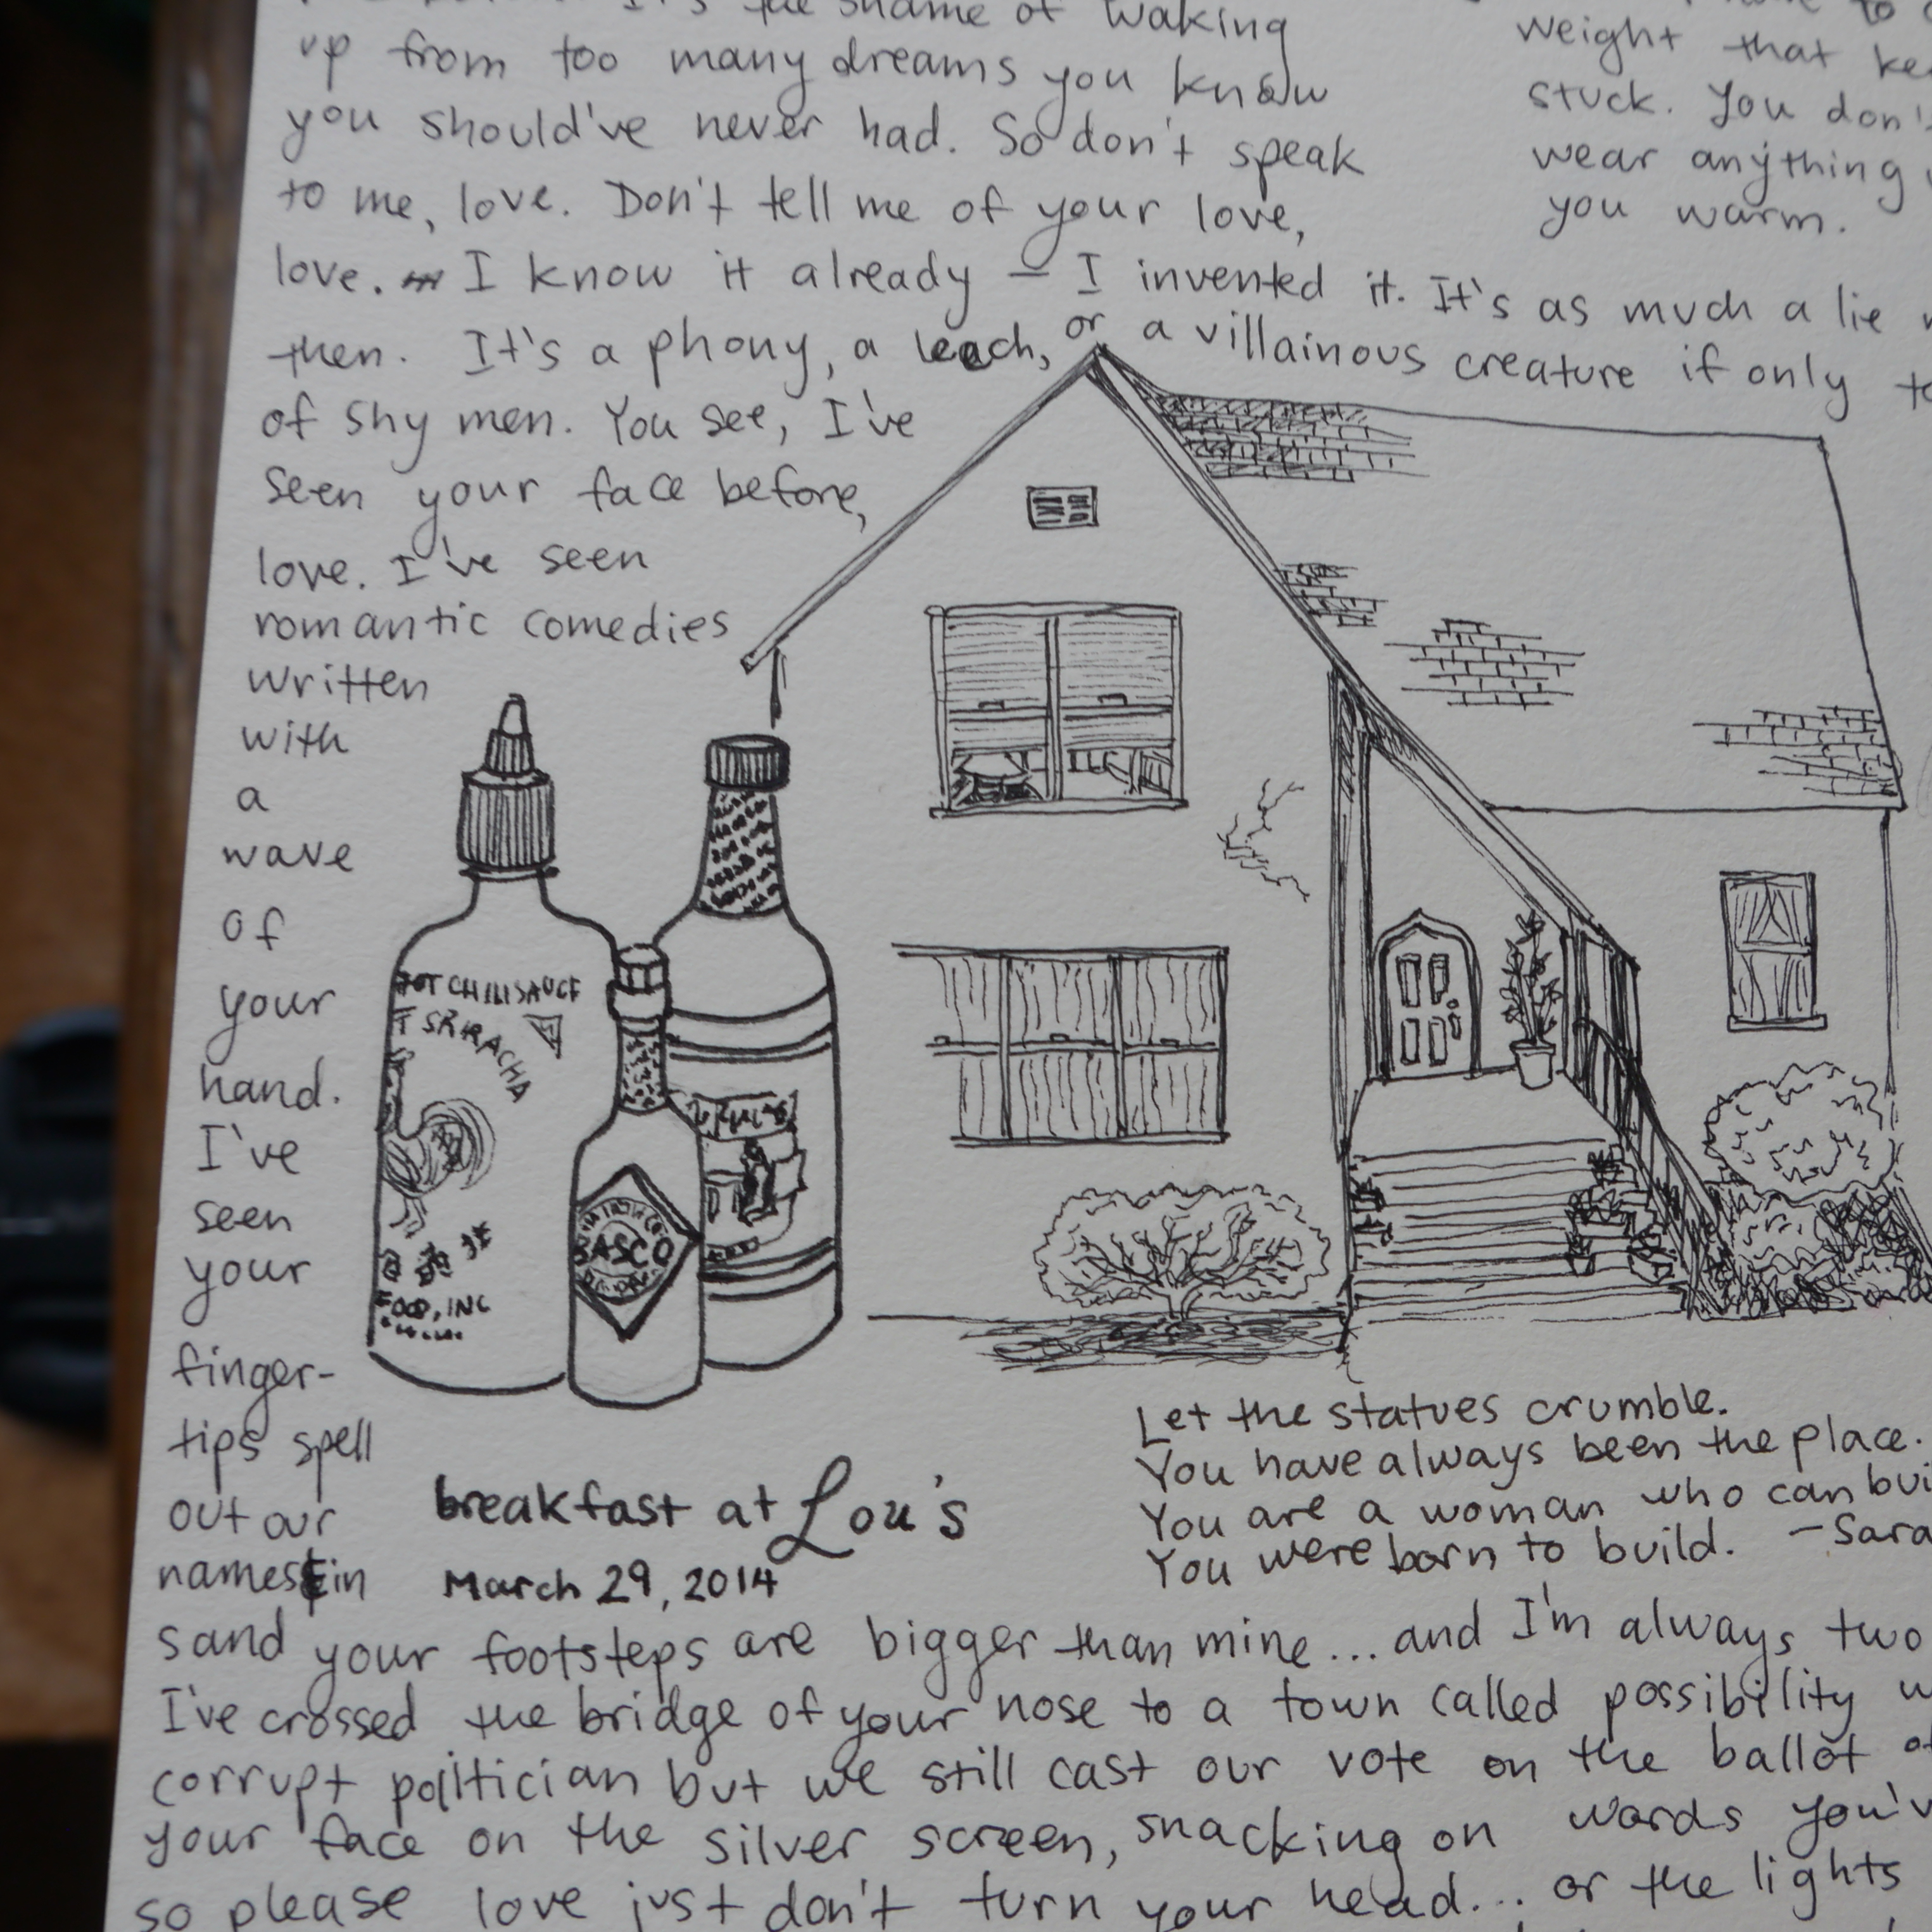 It's the shame of waking
up from too many dreams you know
you should've never had. So don't speak
to me, love. Don't tell me of your love,
love. I know it already — I invented it. It's as much a lie
then. It's a phony, a leach, or a villainous creature if only
of shy men. You see, I've
seen your face before,
love. I've seen
romantic comedies
written
with
a
wave
of
your
hand.
I've
seen
your
finger-
tips spell
out our
names in
sand your footsteps are bigger than mine... and I'm always two
I've crossed the bridge of your nose to a town called possibility
corrupt politician but we still cast our vote on the ballot
your face on the silver screen, snacking on words you'v
so please love just don't turn your head... or the lights
weight that
stuck. You don't
wear anything
you warm.
HOT CHILI SAUCE
SRIRACHA
FOOD, INC
ASCO
breakfast at Lou's
March 29, 2014
Let the statues crumble.
You have always been the place.
You are a woman who can bui
You were born to build. —Sara